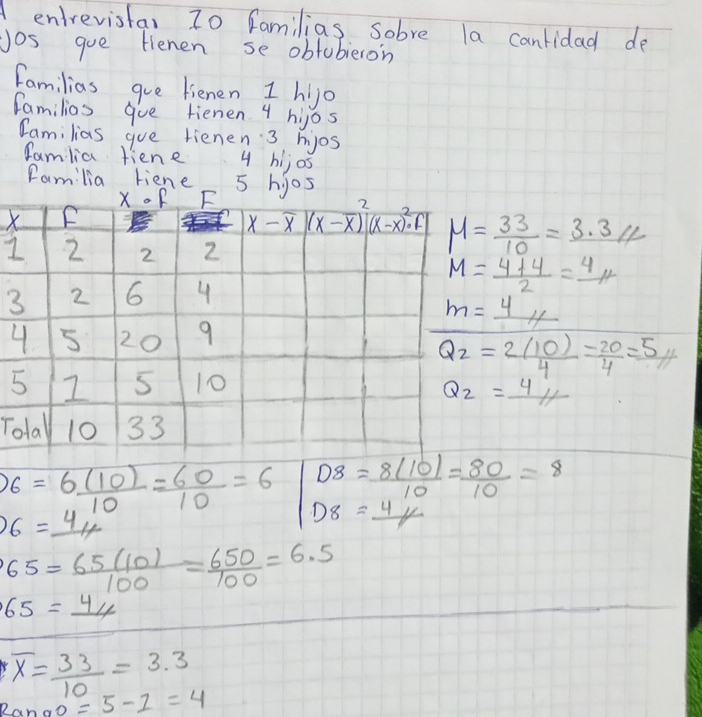 entrevistar 10 familias sobre la cantidad de
jos que tienen se obtubierón
familias que tienen 1 hijo
familias que tienen 4 hijos
familias que tienen 3 hijos
familia tiene 4 hijos
familia tiene 5 hijos
x . f F
X F X - X̄ (X - X̄)² (X-X)².f
1 2 2 2
3 2 6 4
4 5 20 9
5 1 5 10
Total 10 33
M = 33/10 = 3.3
M = 4+4/2 = 4
m = 4
Q2 = 2(10)/4 = 20/4 = 5
Q2 = 4
D6 = 6(10)/10 = 60/10 = 6
D6 = 4
D8 = 8(10)/10 = 80/10 = 8
D8 = 4
P65 = 65(10)/100 = 650/100 = 6.5
P65 = 4
X̄ = 33/10 = 3.3
Rango = 5-1 = 4